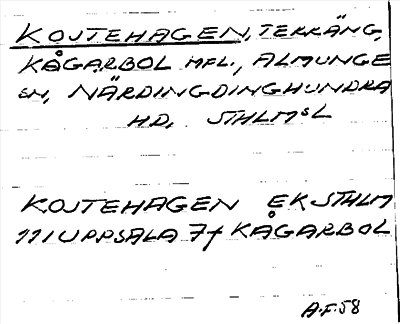 KOJTEHAGEN, TERRÄNG,
KÅGARBOL MFL., ALMUNGE
SN, NÄRDINGDINGHUNDRA
HD, STHLMSL
KOJTEHAGEN EK STHLM
111 UPPSALA 7f KÅGARBOL
A.F. 58